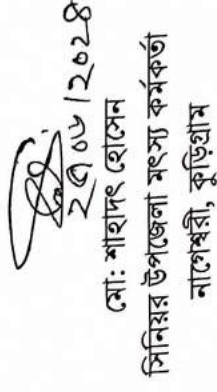 ২৭/০৬/২০২৪
মো: শাহাদৎ হোসেন
সিনিয়র উপজেলা মৎস্য কর্মকর্তা
নাগেশ্বরী, কুড়িগ্রাম